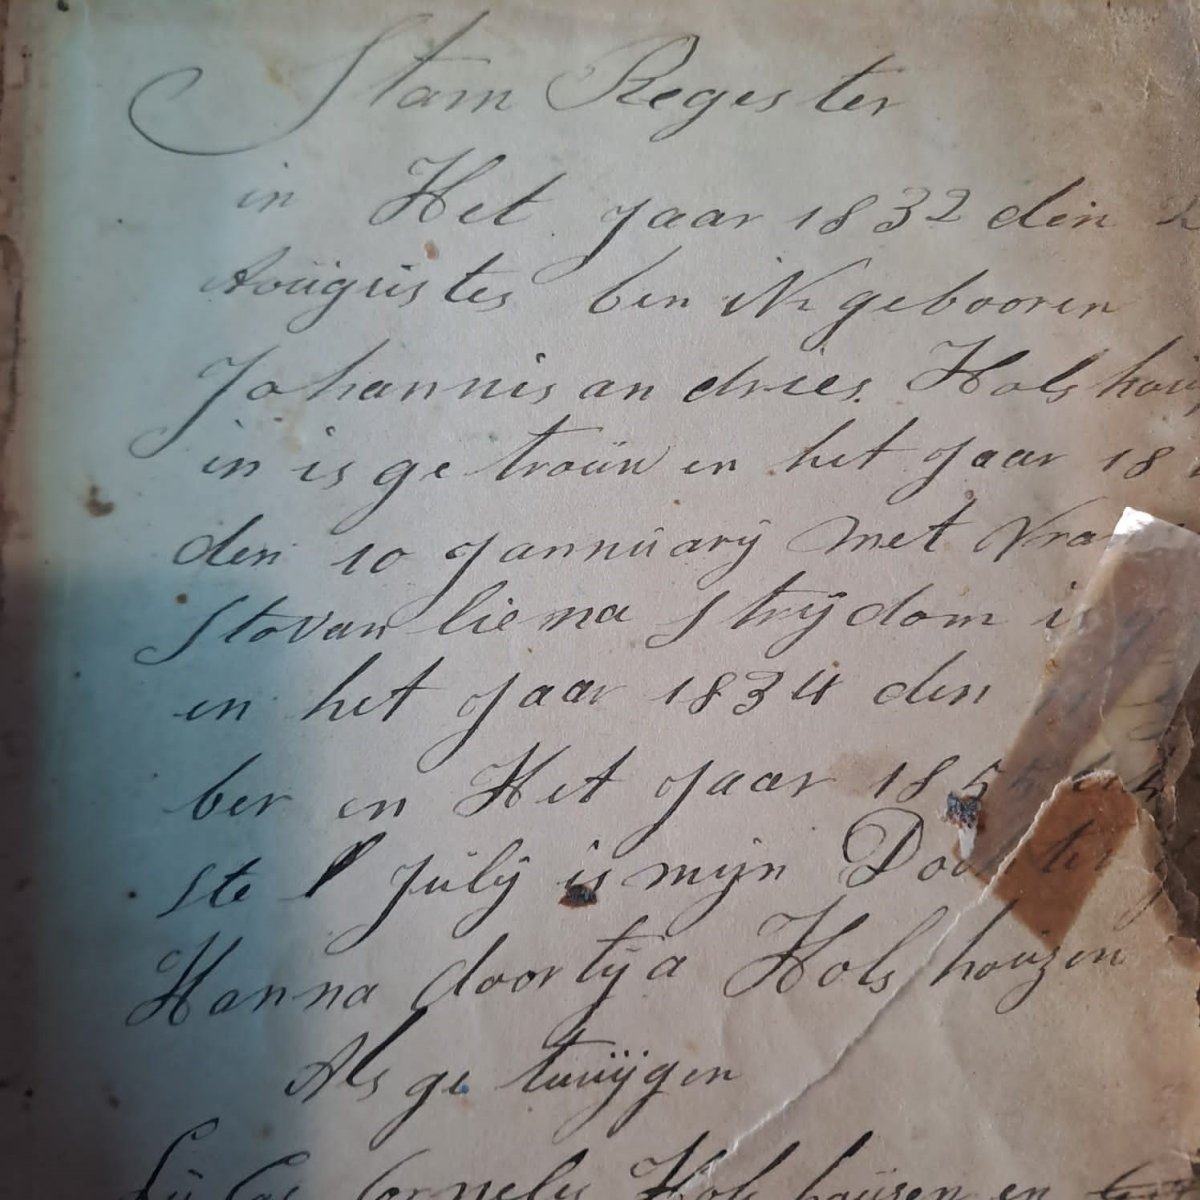 Stam Regester
in Het Jaar 1832 den 2
Aoügüstes ben ik gebooren
Johannis andries Hols hou
in is ge troün en het Jaar 18
den 10 Jannüarÿ Met Vra
Stovan liena Strÿdom
en het Jaar 1834 den
ber en Het Jaar 185
ste Jülÿ is mÿn Doch ter
Hanna doortÿa Hols houzen
Als ge tuüÿgen
Hols haüsen en